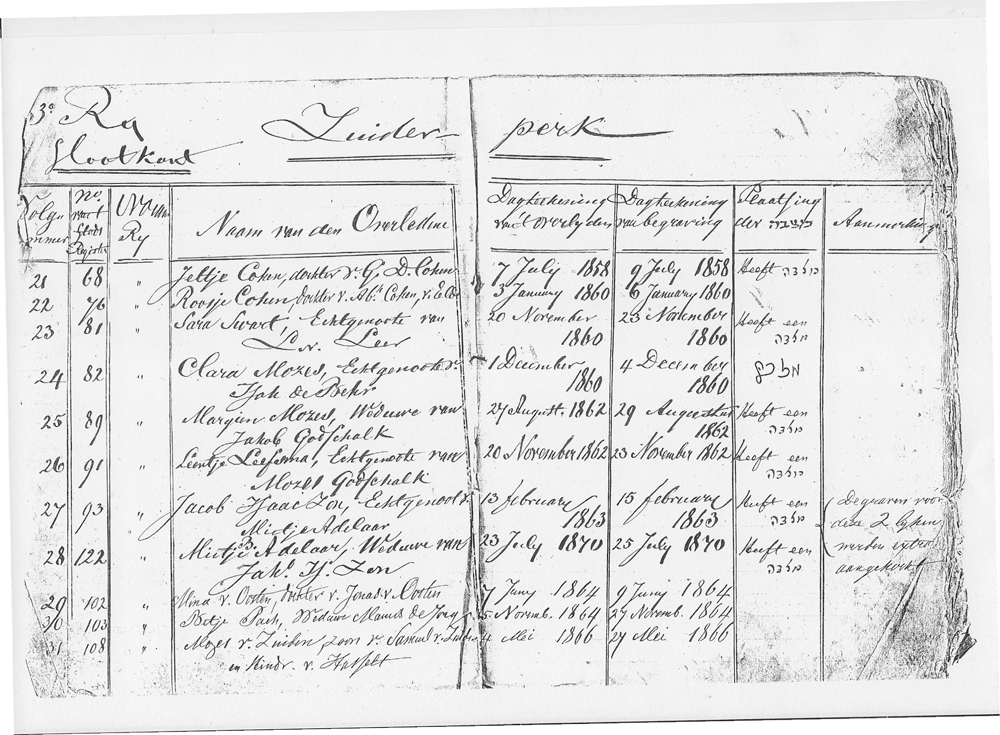 3e Ry Zuider perk
Slootkant
Volgnommer No. van't Stads Register Ry Naam van den Overledene Dagteekening van't overlyden Dagteekening van begraving Plaatsing der מצבה Aanmerkingen
21 68 " Jeltje Cohen, dochter v. G. D. Cohen 7 July 1858 9 July 1858 Heeft מצבה
22 76 " Roosje Cohen dochter v. Abr. Cohen, 3 January 1860 6 January 1860
23 81 " Sara Swart, Echtgenoote van 20 November 23 November Heeft een
L. v. Leer 1860 1860 מצבה
24 82 " Clara Mozes, Echtgenoote v. 1 December 4 December
Isak de Behr 1860 1860
25 89 " Margien Mozes, Weduwe van 27 August. 1862 29 Augustus Heeft een
Jakob Godschalk 1862 מצבה
26 91 " Leentje Leefsma, Echtgenoote van 20 November 1862 23 November 1862 Heeft een
Mozes Godschalk מצבה
27 93 " Jacob Isaac Zon, Echtgenoot v. 13 february 15 february Heeft een (Degraven voor
Mietje Adelaar 1863 1863 מצבה deze 2 lyken
28 122 " Mietje B Adelaar, Weduwe van 23 July 1870 25 July 1870 Heeft een werden extra
Jak. Is. Zon מצבה aangekocht
29 102 " Mina v. Oosten, dochter v. Jonas v. Oosten 7 Juny 1864 9 Juny 1864
30 103 " Betje Pach, Weduwe Manus de Jong Novemb. 1864 27 Novemb. 1864
31 108 " Mozes v. Zuiden zoon v. Samuel v. Zuiden Mei 1866 27 Mei 1866
en Hindr. v. Hasselt